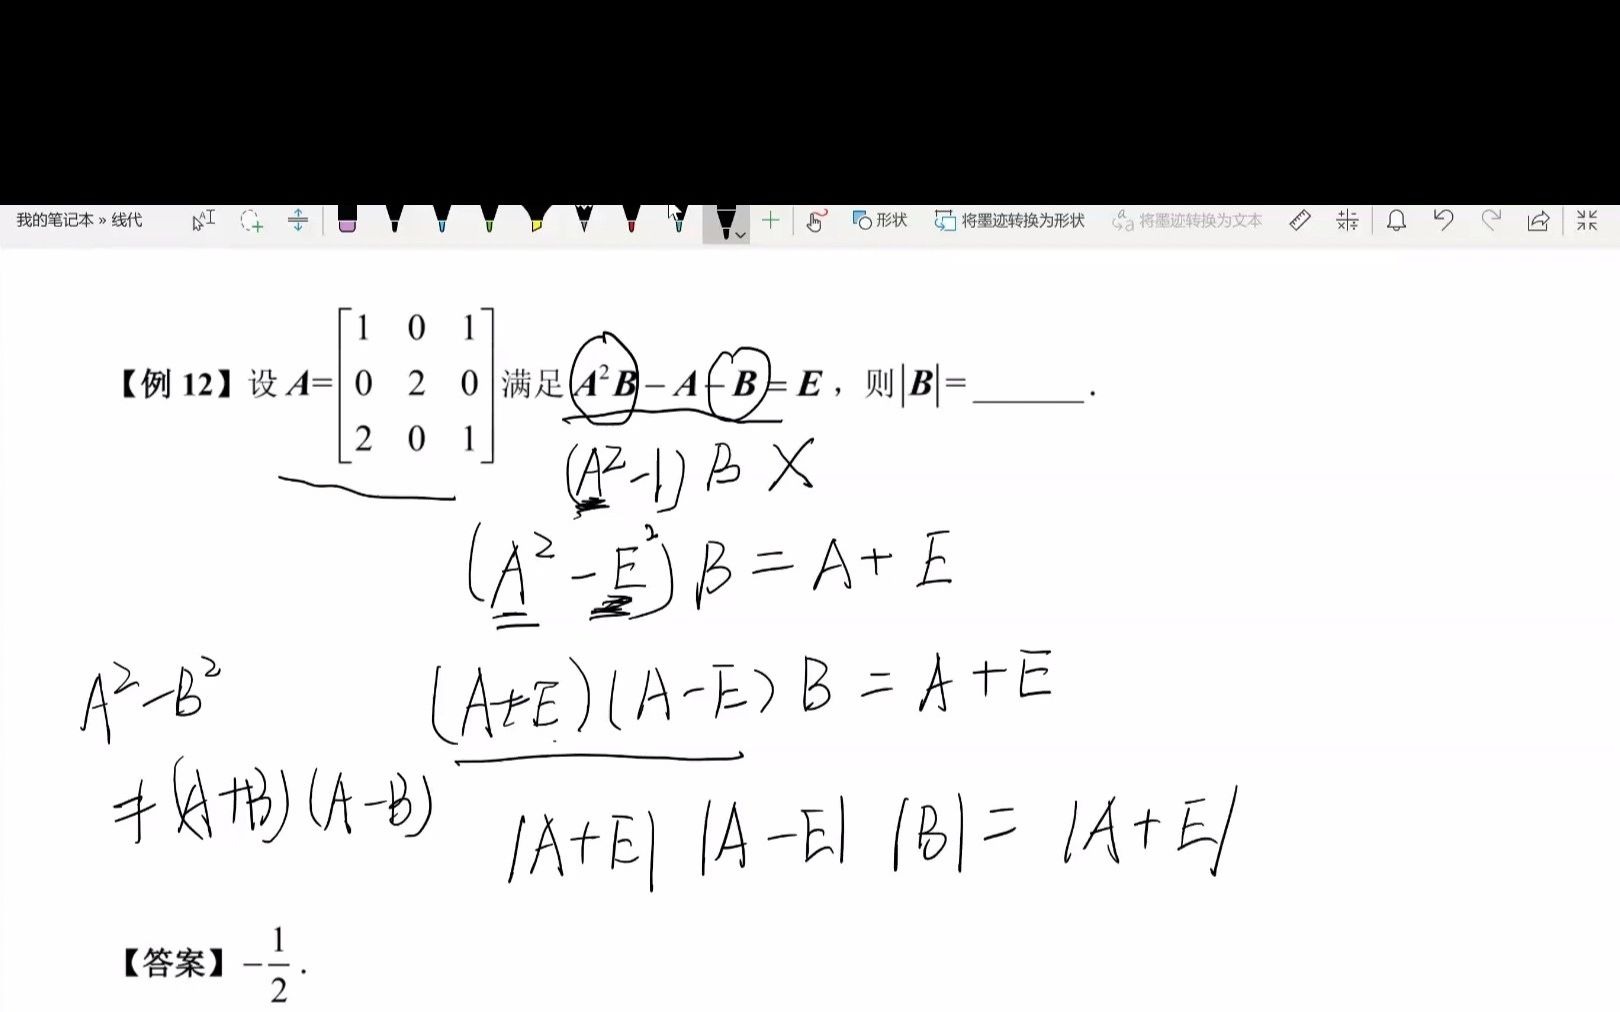 我的笔记本 » 线代 形状 将墨迹转换为形状 将墨迹转换为文本
【例 12】设 A= [1 0 1 满足 A²B − A − B = E，则|B|=______.
0 2 0
2 0 1]
(A²-1) B X
(A² - E²) B = A + E
A² - B² (A+E)(A-E) B = A + E
≠ (A+B)(A-B) |A+E| |A-E| |B| = |A+E|
【答案】-1/2.